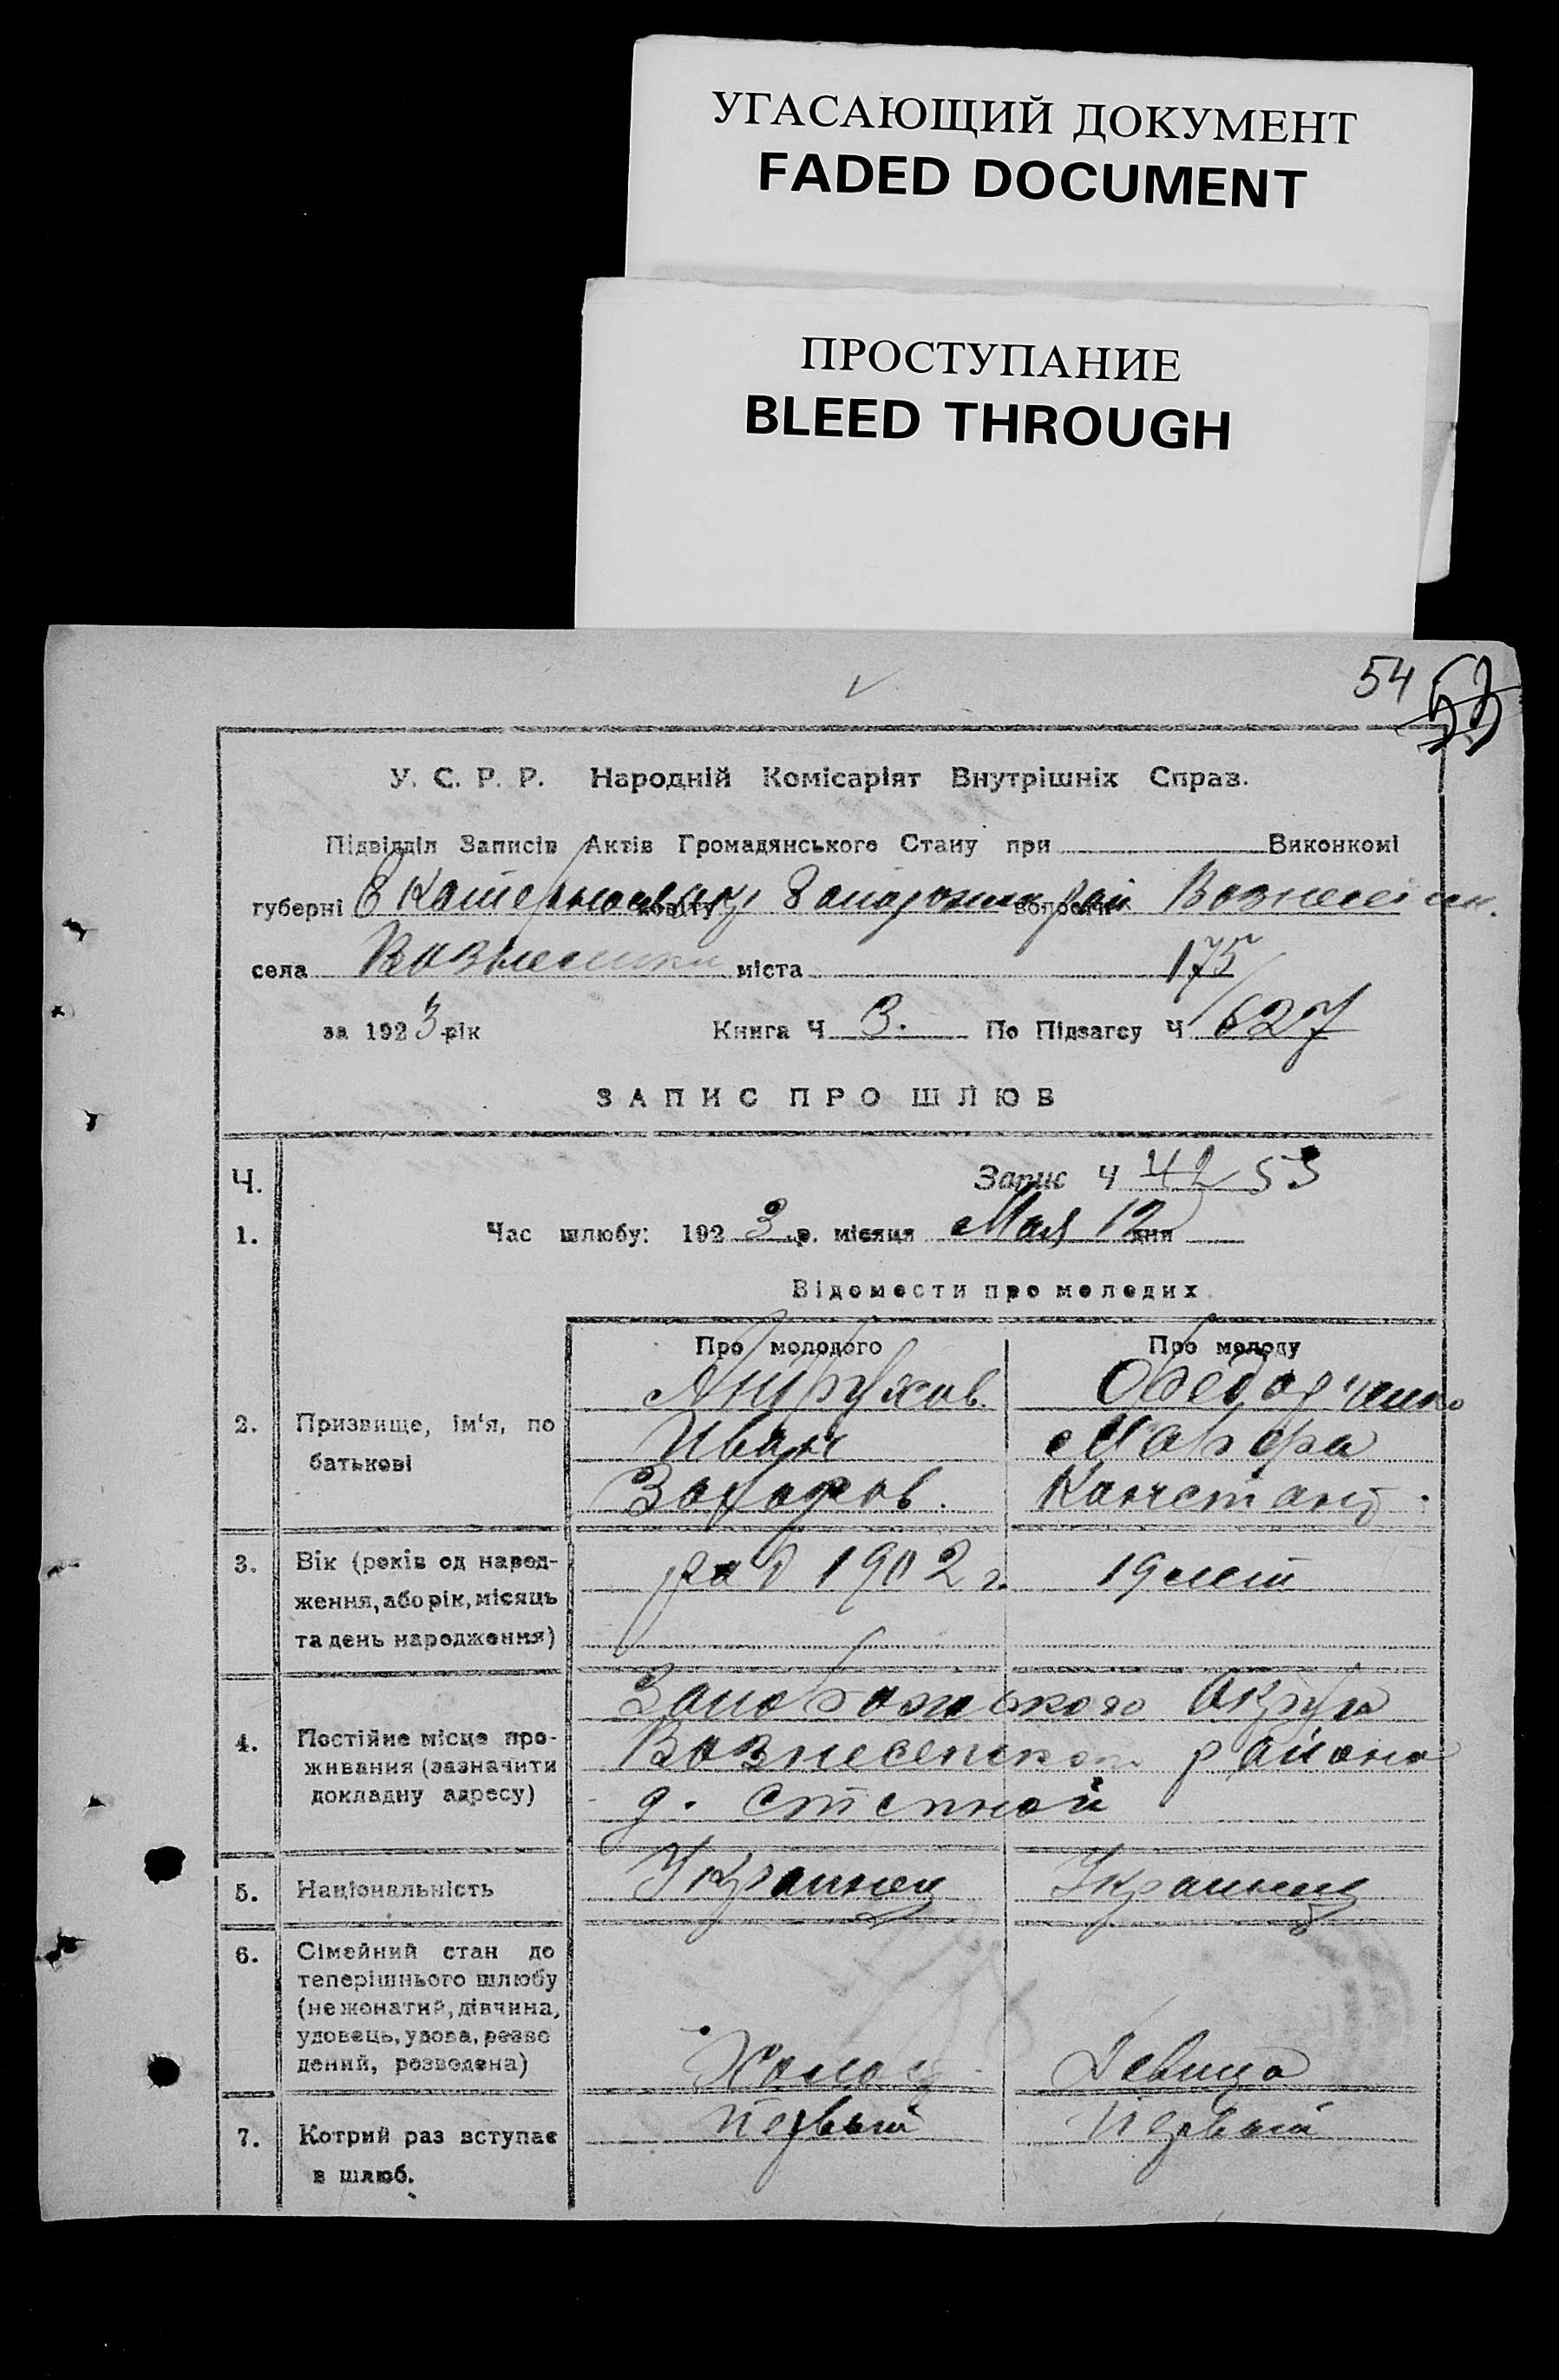 УГАСАЮЩИЙ ДОКУМЕНТ
FADED DOCUMENT
ПРОСТУПАНИЕ
BLEED THROUGH
54
У. С. Р. Р. Народній Комісаріят Внутрішніх Справ.
Підвідділ Записів Актів Громадянського Стану при Виконкомі
губерні повіту волости
села Вознесенки міста 175
за 1923 рік Книга Ч 3. По Підзагсу Ч 627
ЗАПИС ПРО ШЛЮБ
Ч. Запис Ч 42 53
1. Час шлюбу: 1923 р. місяця Мая 12 дня
Відомости про молодих
Про молодого Про молоду
Федорченко
2. Призвище, ім'я, по Иван
батькові Захаров. Констант.
3. Вік (років од народ- род 1902 г. 19 лет
ження, або рік, місяць
та день народження)
Запорожського Округа
4. Постійне місце про- Вознесенского района
живання (зазначити д. Степной
докладну адресу)
5. Національність Украинец Украинец
6. Сімейний стан до
теперішнього шлюбу
(не жонатий, дівчина,
удовець, удова, розве
дений, розведена) Холост Девица
7. Котрий раз вступає Первый Первый
в шлюб.